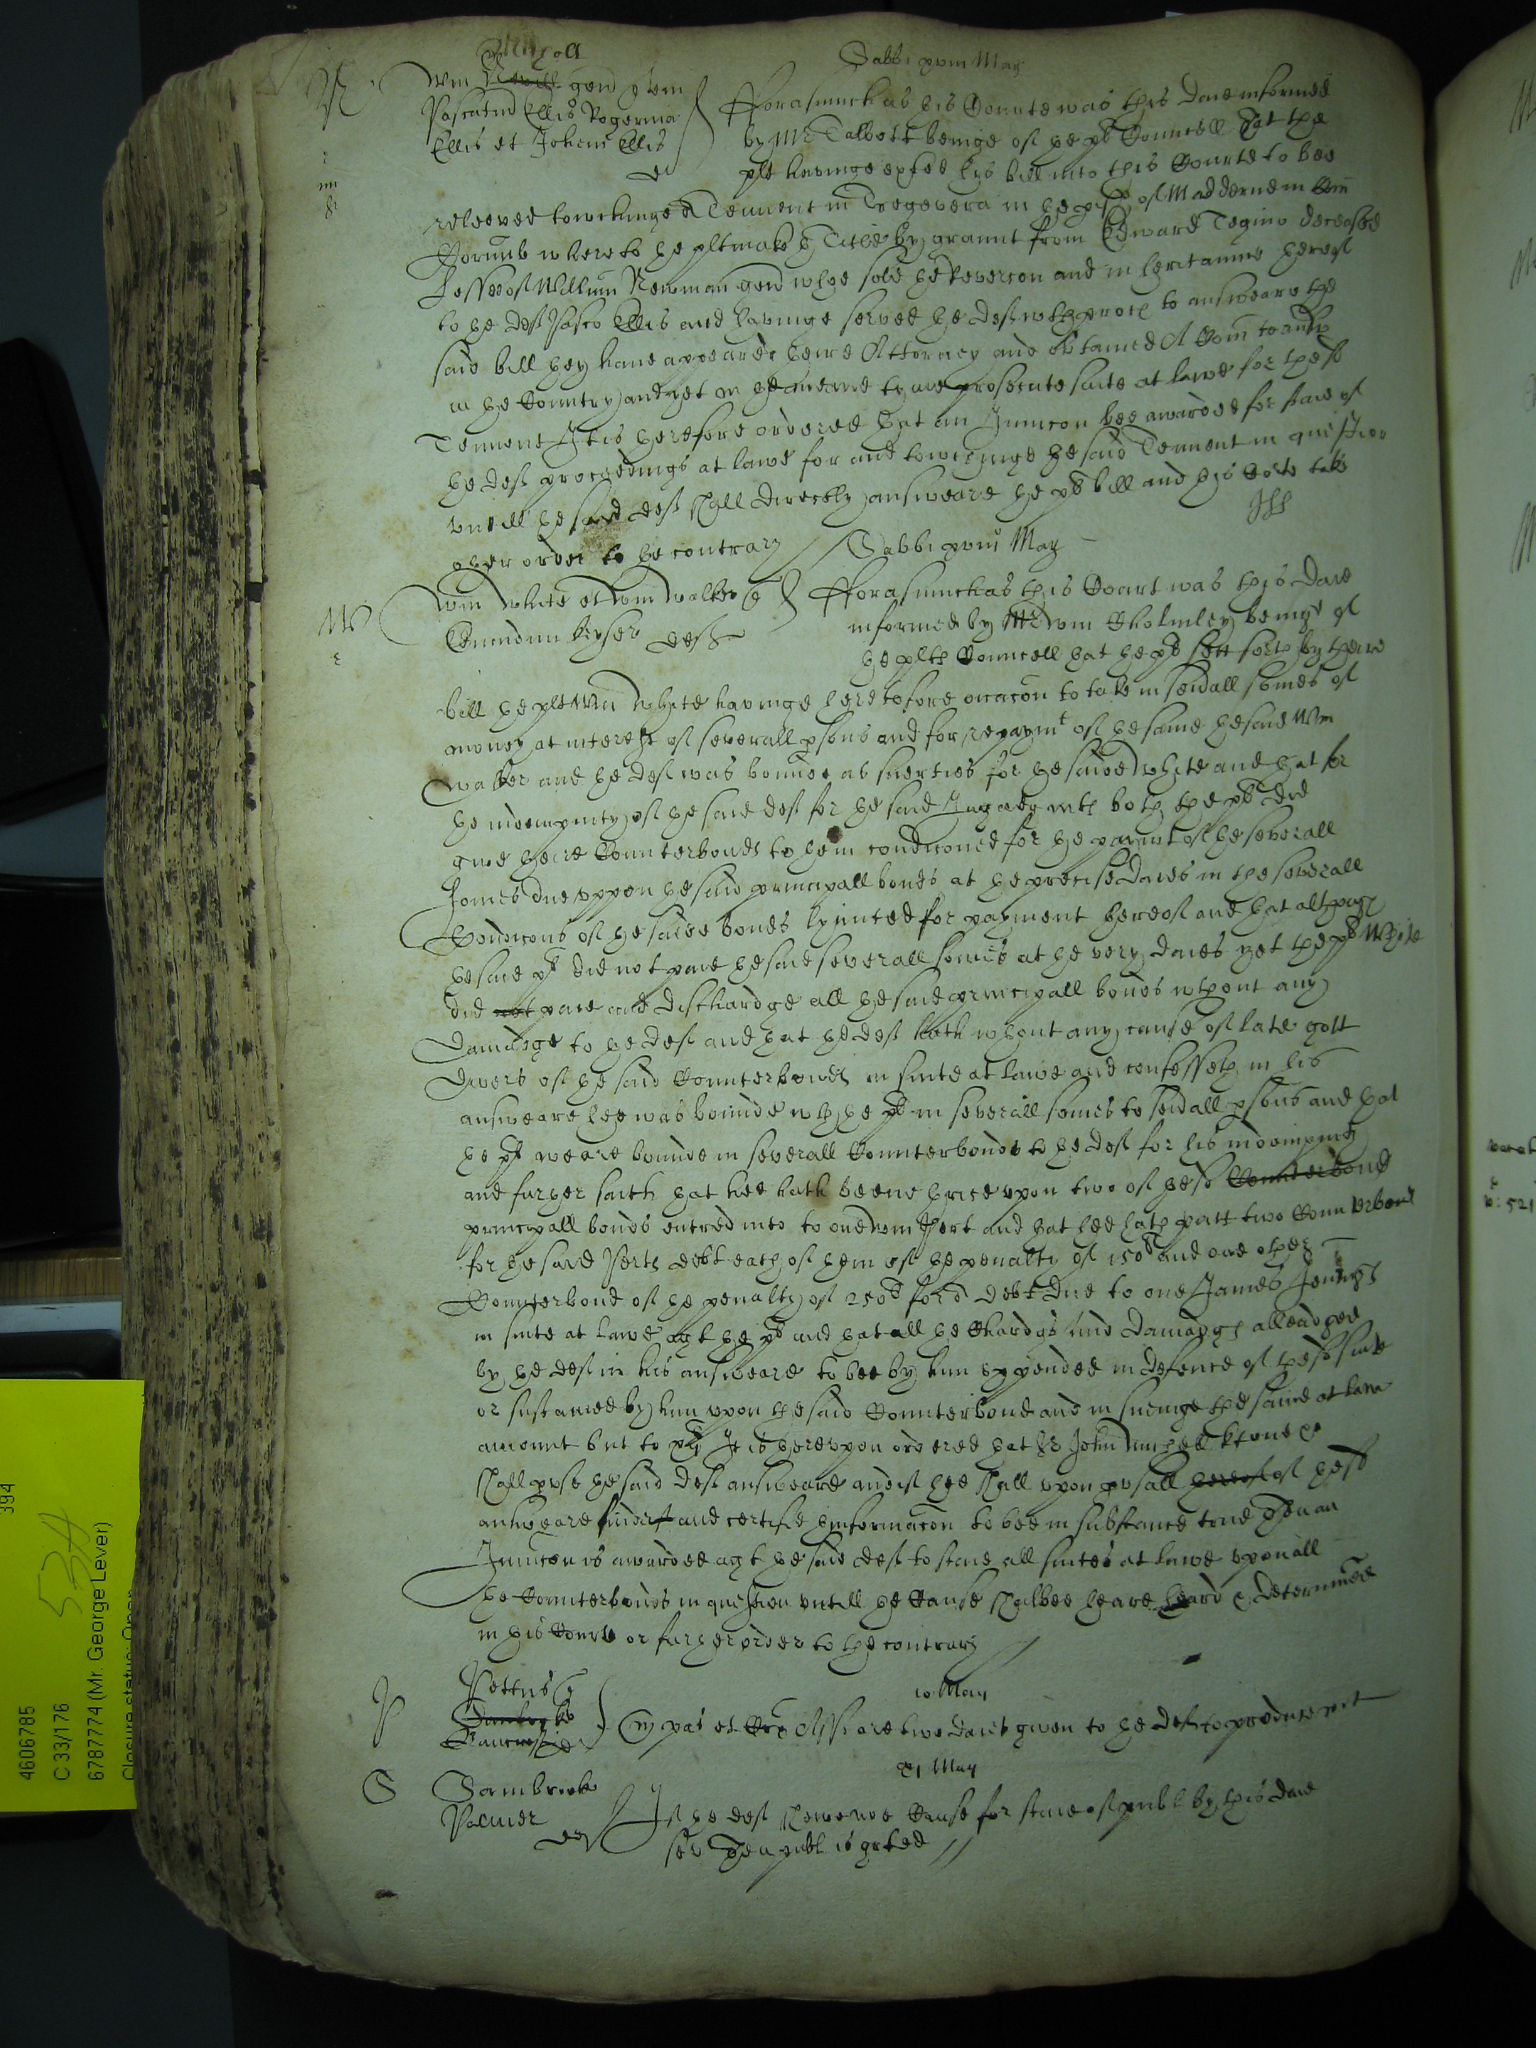 Sabbi primo May
Wm gen quer
Pascatiu Ellis Rogerum
Ellis et Johem Ellis
def
Forasmuch as this Courte was this daie informed
by Mr Talbott beinge of the pl Councell that the
plt havinge exhibited his bill into this Courte to bee
releeved towchinge A Tenement in Tregevera in the pish of Madderne in Com
Cornub whereto the plt maketh Title by graunt from Edward Tegino deceased
Lessee of William Newman gen whoe sold the Revercon and inheritannce thereof
to the def Pasco Ellis and havinge served the def wth proces to answeare the
said bill they have appeared theire Attorney and obtained A Com to answ
in the Country and yet in the meane tyme prosecute suite at lawe for the sd
Tenement It is therefore ordered that an Iniuncon bee awarded for staie of
the def proceedings at lawe for and towchinge the said Tenement in question
untill the said def shall directly answeare the pl bill and this Courte take
other order to the contrary
Sabbi primo May
Wm White et Wm Walker quer
Edmundum Kyser def
Forasmuch as this Court was this daie
informed by Mr Wm Cholmley beinge of
the plts Councell that the pl sett forth by theire
bill the plt Wm White havinge heretofore occacon to take in sevall somes of
money at interest of severall psons and for repaymt of the same the said Wm
Walker and the def was bounde as suerties for the saied White and that for
the indempnity of the said def for the said Ingagemts both the pl did
give theire Counterbonds to them condiconed for the paiemt of the severall
somes due uppon the said principall bonds at the precise daies in the severall
Condicons of the saied bonds lymited for payment thereof and that although
the said pl did not paie the said severall somes at the very daies yet the pl White
did paie and dischardge all the said principall bonds wthout any
damadge to the def and that the def hath wthout any cause of late gott
divers of the said Counterbonds in suite at lawe and confesseth in his
answeare hee was bounde wth the pl in severall somes to sevall psons and that
the pl weare bounde in severall Counterbonds to the def for his indempnity
and further saith that hee hath beene sued upon two of these Counterbond
principall bonds entred into to one Wm and that hee hath putt two Counterbond
for the said debt each of them of the penalty of 150li and one other
Counterbond of the penalty of 250li for a debt due to one James Jenings
in suite at lawe agt the pl and that all the Chardgs and damadgs alleadged
by the def in his answeare to bee by him expended in defence of these suite
or sustained by him upon the said Counterbond and in sueinge the same at lawe
amount but to It is thereupon ordered that Sr John
shall puse the said def answeare and if hee shall upon pusall thereof of the sd
answeare finde it and certifie thinformacon to bee in substance true then an
Iniuncon is awarded agt the said def to staie all suites at lawe upon all
the Counterbonds in question untill the Cause shalbee heare heard & determined
in this Court or further order to the contrary
10 May
Pettus
two daies given to the def to produce wit
May
Sambrook
Palmer
def
If the def shewe noe Cause for staie of publ by this daie
sev then publ is grted
4606785
C 33/176
6787774 (Mr. George Lever)
Closure status: Open
394
534